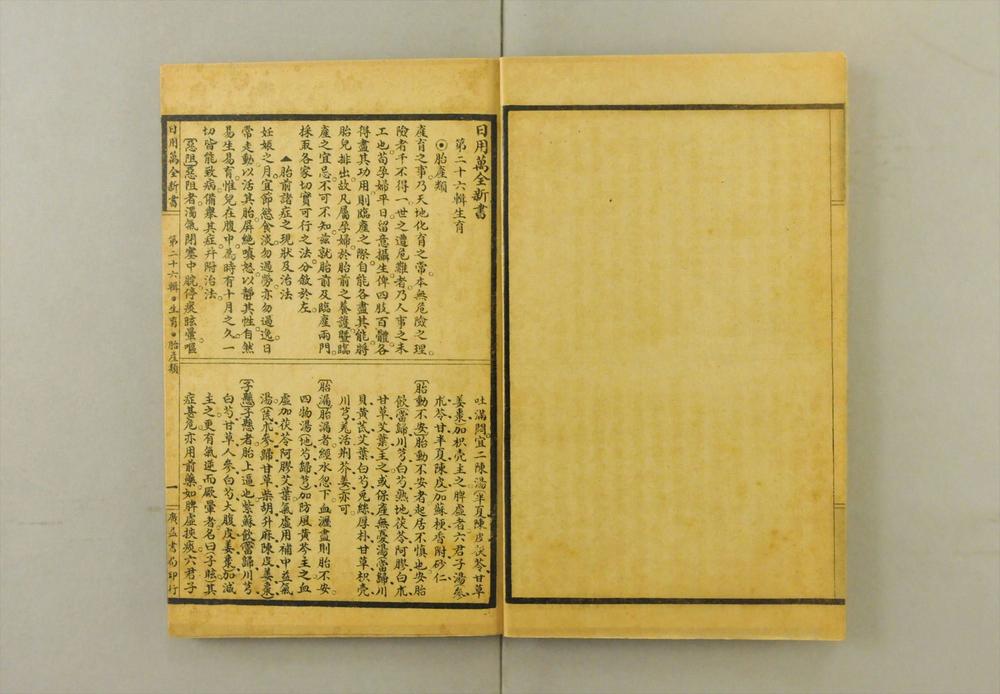 日用萬全新書
第二十六輯生育
◉胎產類
產育之事乃天地化育之常本無危險之理
險者千不得一世之遭危難者乃人事之未
工也苟孕婦平日留意攝生俾四肢百體各
得盡其功用則臨產之際自能各盡其能將
胎兒排出故凡屬孕婦於胎前之養護暨臨
產之宜忌不可不知茲就胎前及臨產兩門
採取各家切實可行之法分敘於左
▲胎前諸症之現狀及治法
妊娠之月宜節飲食淡勿過勞亦勿過逸日
常走動以活其胎屏絕嗔怒以靜其性自然
易生易育惟兒在腹中為時有十月之久一
切皆能致病備舉其症幷附治法
(惡阻)惡阻者濁氣閉塞中脘停痰眩暈嘔
吐滿悶宜二陳湯(半夏陳皮茯苓甘草
姜棗)加枳壳主之脾虛者六君子湯參
朮苓甘半夏陳皮加蘇梗香附砂仁
(胎動不安)胎動不安者起居不慎也安胎
飲(當歸川芎白芍熟地茯苓阿膠白朮
甘草艾葉)主之或保產無憂湯(當歸川
貝黃芪艾葉白芍兎絲厚朴甘草枳壳
川芎羌活荆芥姜亦可
(胎漏)胎漏者經水忽下血瀝盡則胎不安
四物湯(地芍歸芎)加防風黃芩主之血
虛加茯苓阿膠艾葉氣虛用補中益氣
湯(芪朮參歸甘草柴胡升麻陳皮姜棗)
(子懸)子懸者胎上逼也紫蘇飲(當歸川芎
白芍甘草人參白芍大腹皮姜棗加減
主之更有氣逆而厥暈者名曰子眩其
症甚危亦用前藥如脾虛挾痰六君子
日用萬全新書
第二十六輯●生育●胎產類
一
廣益書局印行